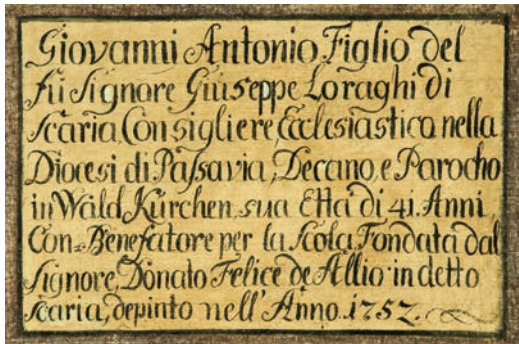 Giovanni Antonio Figlio del
fù Signore Giuseppe Loraghi di
Scaria, Consigliere, Ecclesiastico nella
Diocesi di Paſsavia, Decano, e Parocho
in Wald Kürchen, sua Ettà di 41. Anni,
Con-Benefatore per la Scola Fondata dal
Signore, Donato Felice de Allio in detto
Scaria, depinto nell' Anno. 1757.